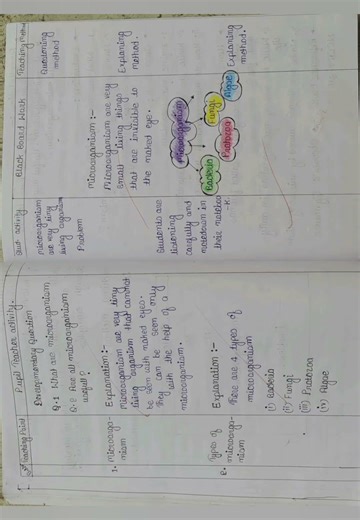 Teaching Point
Pupil Teacher activity.
Stud. activity
Black Board Work
Teaching Method
Developmentary Question
Q.1 What are microorganism
Q.2 Are all microorganism
useful?
microorganism
are very tiny
living organism
Problem
Questioning
method
1. microorga-
nism
Explanation :-
microorganism are very tiny
living organism that cannot
be seen with naked eyes.
They can be seen only
with the help of a
microorganism.
Students are
listening
carefully and
notedown in
their notebook
microorganism :-
Microorganism are very
small living things
that are invisible to
the naked eye.
Explaning
method.
2. Types of
microorga-
nism
Explanation :-
There are 4 types of
microorganism
(i) Bacteria
(ii) Fungi
(iii) Protozoa
(iv) Algae
microorganism
Bacteria
Protozoa
Fungi
Algae
Explaning
method.